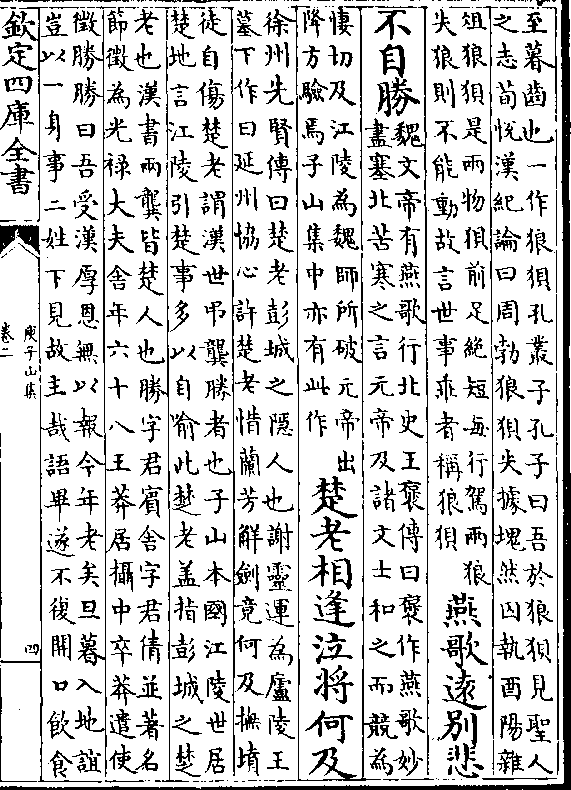 至暮齒也一作狼狽孔叢子孔子曰吾於狼狽見聖人
之志荀悅漢紀論曰周勃狼狽失據塊然囚執酉陽雜
俎狼狽是兩物狽前足絶短每行駕兩狼
失狼則不能動故言世事乖者稱狼狽
燕歌遠别悲
不自勝
魏文帝有燕歌行北史王褒傳曰褒作燕歌妙
盡塞北苦寒之言元帝及諸文士和之而競為
悽切及江陵為魏師所破元帝出
降方驗焉子山集中亦有此作
楚老相逢泣將何及
徐州先賢傳曰楚老彭城之隱人也謝靈運為廬陵王
墓下作曰延州協心許楚老惜蘭芳解劍竟何及撫墳
徒自傷楚老謂漢世弔龔勝者也子山本國江陵世居
楚地言江陵引楚事多以自喻此楚老盖指彭城之楚
老也漢書兩龔皆楚人也勝字君賓舍字君倩並著名
節徵為光禄大夫舍年六十八王莽居攝中卒莽遣使
徵勝勝曰吾受漢厚恩無以報今年老矣旦暮入地誼
豈以一身事二姓下見故主哉語畢遂不復開口飲食
欽定四庫全書
庾子山集
卷二
四